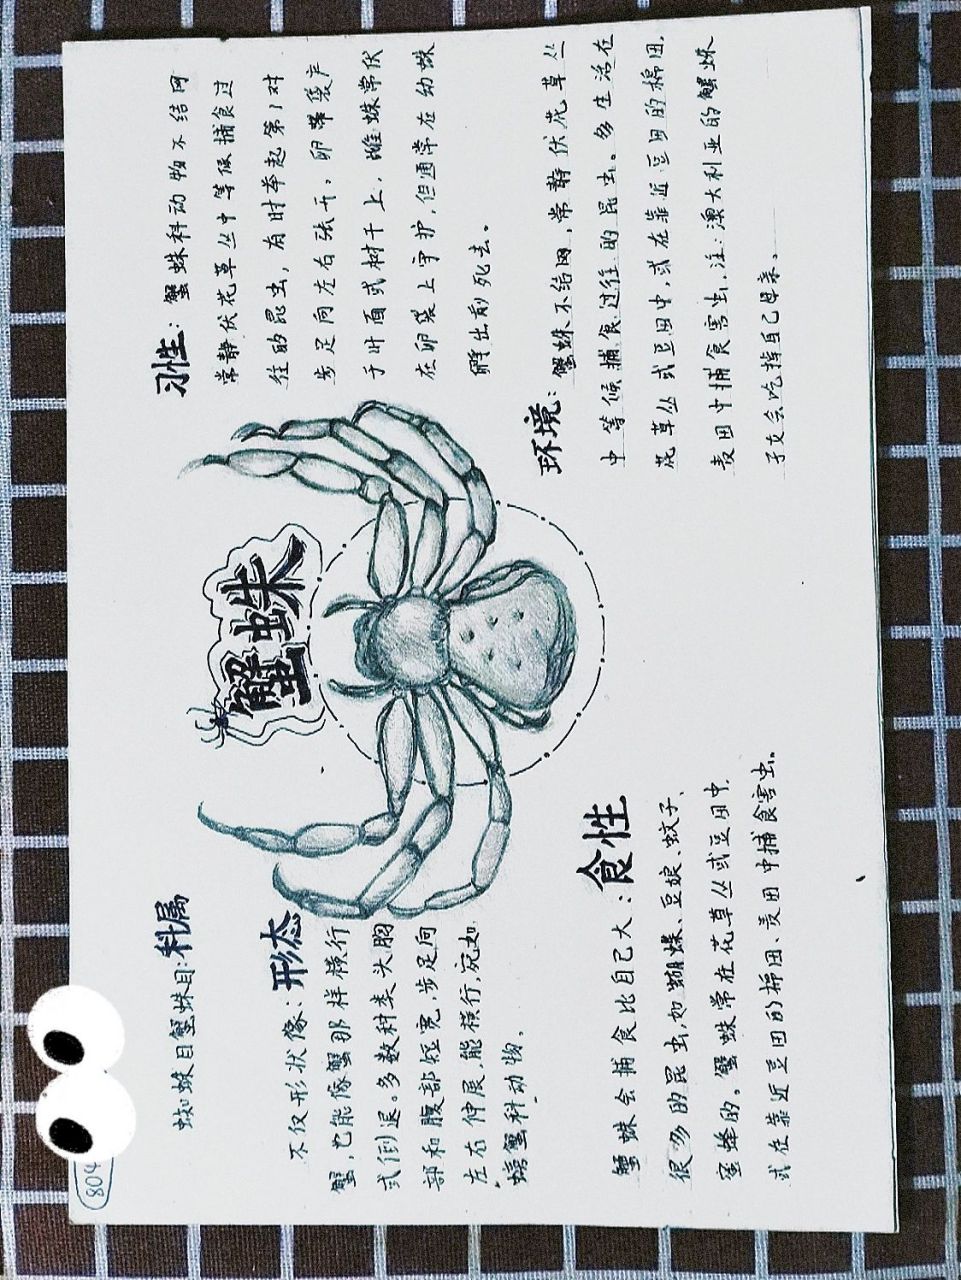 804
蟹蛛
蜘蛛目蟹蛛目:科属
形态:
不仅形状像
蟹,也能像蟹那样横行
或倒退。多数种类头胸
部和腹部短宽,步足向
左右伸展,能横行,宛如
螃蟹科动物。
习性:蟹蛛科动物不结网
常静伏花草丛中等候捕食过
往的昆虫,有时举起第1对
步足向左右张开,卵带袋产
于叶面或树干上,雌蛛常伏
在卵袋上守护,但通常在幼蛛
孵出前死去。
食性
蟹蛛会捕食比自己大:
很多的昆虫,如蝴蝶、豆娘、蚊子、
蜜蜂的。蟹蛛常在花草丛或豆田中,
或在靠近豆田的棉田、麦田中捕食害虫。
环境:蟹蛛不结网,常静伏花草丛
中等候捕食过往的昆虫。多生活在
花草丛或豆田中,或在靠近豆田的棉田,
麦田中捕食害虫,注:澳大利亚的蟹蛛
子女会吃掉自己母亲。